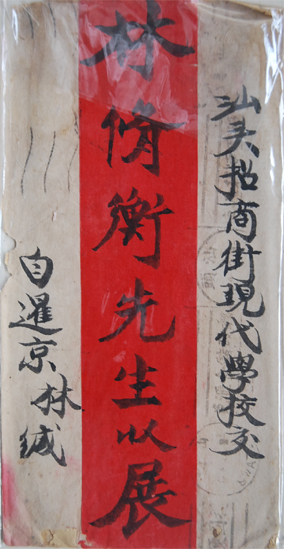 汕头招商街現代學校交
林脩衡先生以展
自暹京林缄